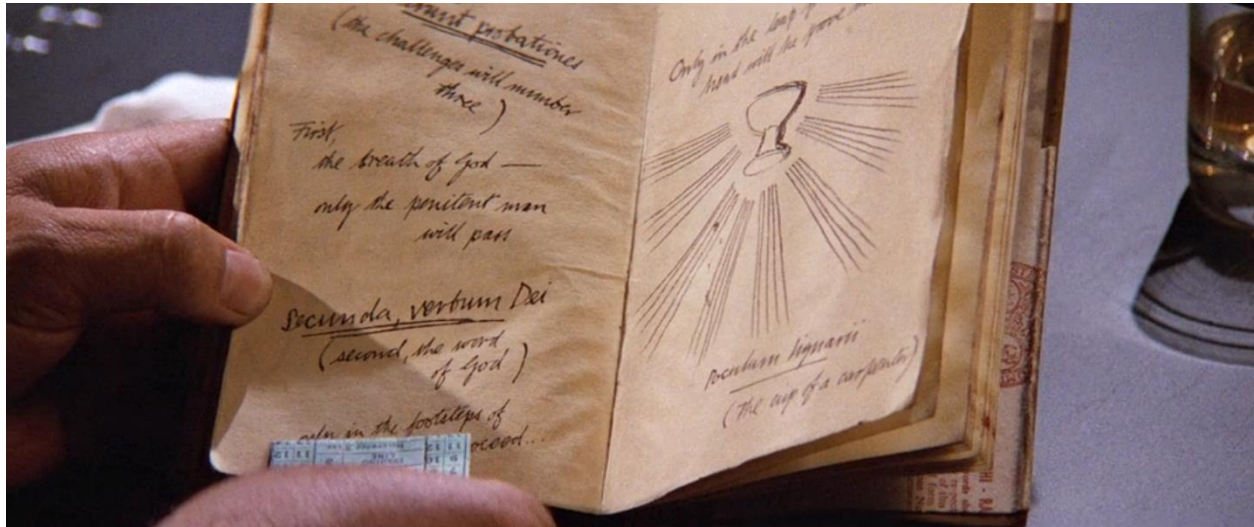 probationes
(the challenges will number
three)
First,
the breath of God —
only the penitent man
will pass
Secunda, verbum Dei
(second, the word
of God)
only in the footsteps of
oceed...
Only in the leap
head will he prove
Poculum lignarii
(the cup of a carpenter)